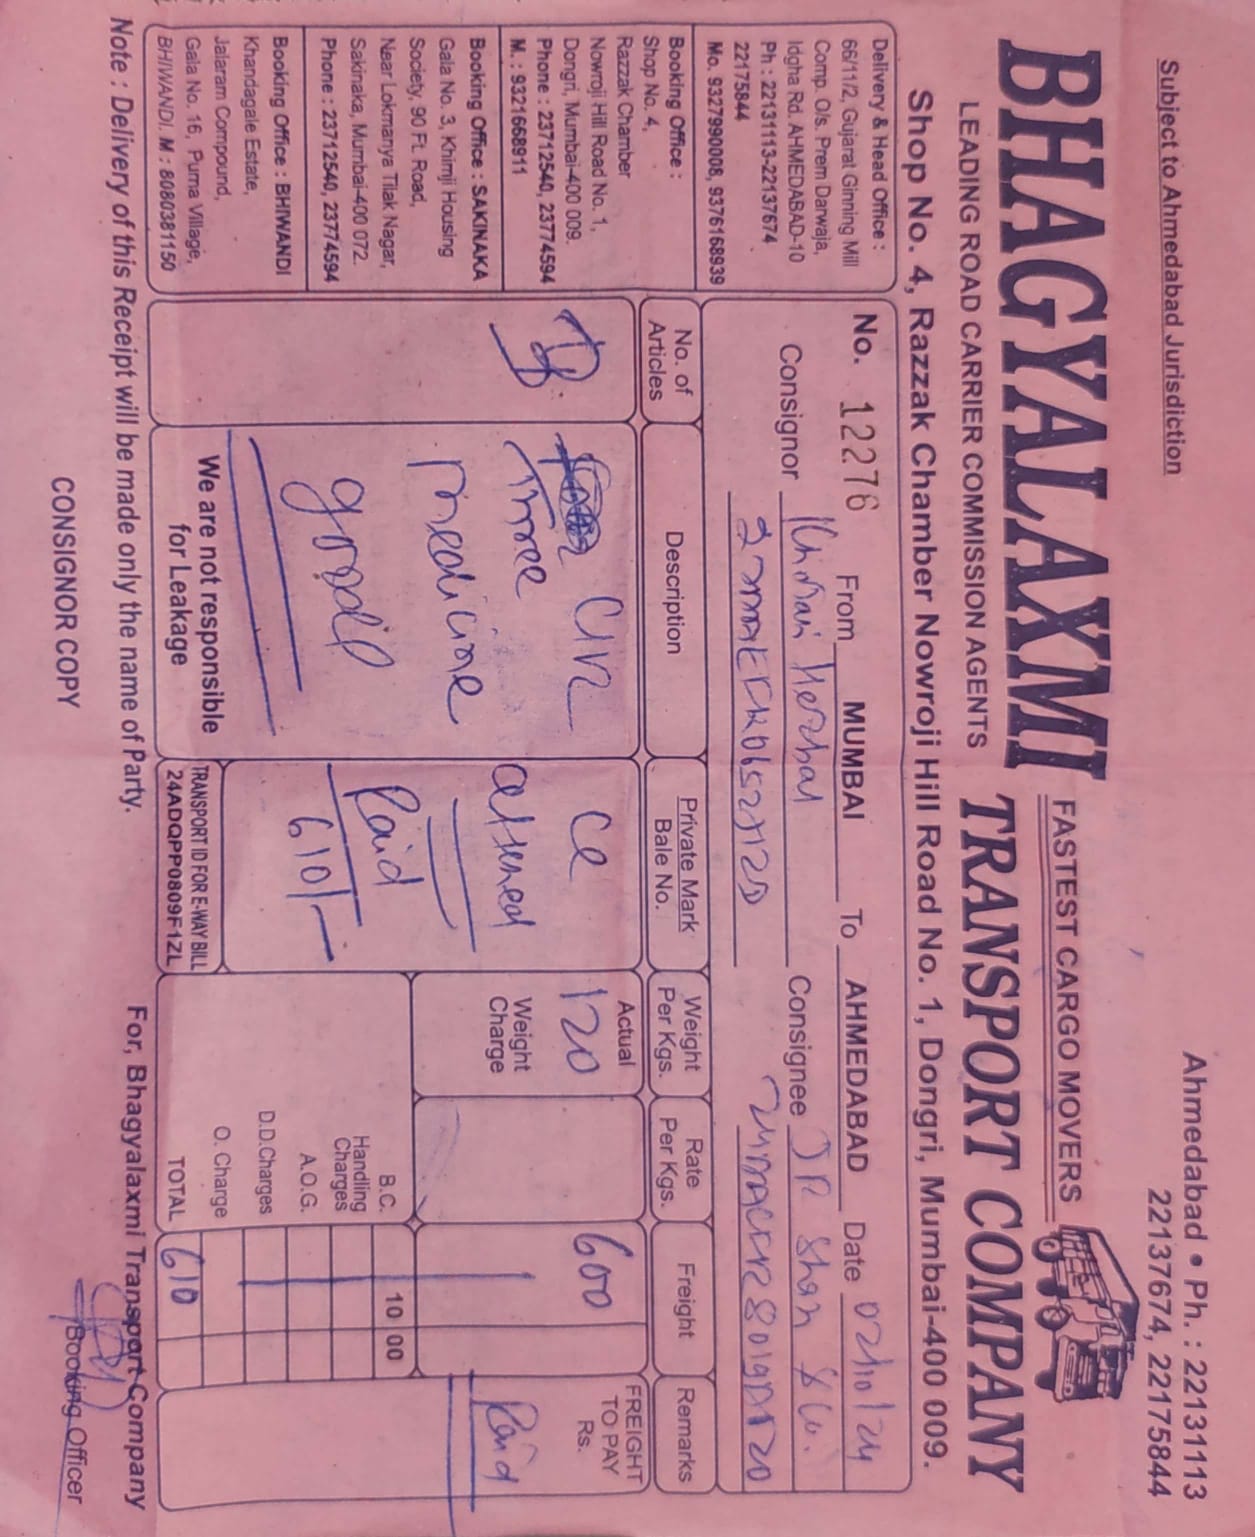 Subject to Ahmedabad Jurisdiction
Ahmedabad • Ph. : 22131113
22137674, 22175844
BHAGYALAXMI
FASTEST CARGO MOVERS
TRANSPORT COMPANY
LEADING ROAD CARRIER COMMISSION AGENTS
Shop No. 4, Razzak Chamber Nowroji Hill Road No. 1, Dongri, Mumbai-400 009.
Delivery & Head Office :
66/11/2, Gujarat Ginning Mill
Comp. O/s. Prem Darwaja,
Idagha Rd. AHMEDABAD-10
Ph : 22131113-22137674
22175844
Mo. 9327990008, 9376168939
Booking Office :
Shop No. 4,
Razzak Chamber
Nowroji Hill Road No. 1,
Dongri, Mumbai-400 009.
Phone : 23712540, 23774594
M. : 9321668911
Booking Office : SAKINAKA
Gala No. 3, Khimji Housing
Society, 90 Ft. Road,
Near Lokmanya Tilak Nagar,
Sakinaka, Mumbai-400 072.
Phone : 23712540, 23774594
Booking Office : BHIWANDI
Khandagale Estate,
Jalaram Compound,
Gala No. 16, Purna Village,
BHIWANDI. M : 8080381150
No. 12276 From MUMBAI To AHMEDABAD Date 02/10/24
Consignor Herbal Consignee Shah & Co.
No. of Articles
Description
Private Mark
Bale No.
Weight
Per Kgs.
Rate
Per Kgs.
Freight
Remarks
Three
medicine
goods
We are not responsible
for Leakage
attached
Paid
610/-
TRANSPORT ID FOR E-WAY BILL
24ADQPP0809F1ZL
Actual
120
Weight
Charge
600
FREIGHT
TO PAY
Rs.
Paid
B.C. 10 00
Handling
Charges
A.O.G.
D.D.Charges
O. Charge
TOTAL 610
Note : Delivery of this Receipt will be made only the name of Party.
For, Bhagyalaxmi Transport Company
CONSIGNOR COPY
Booking Officer